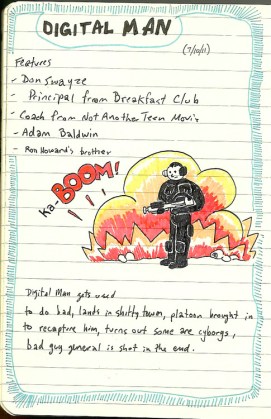 DIGITAL MAN
(7/10/11)
Features
- Don Swayze
- Principal from Breakfast Club
- Coach from Not Another Teen Movie
- Adam Baldwin
- Ron Howard's brother
Ka BOOM!
Digital Man gets used
to do bad, lands in shitty town, platoon brought in
to recapture him, turns out some are cyborgs,
bad guy general is shot in the end.